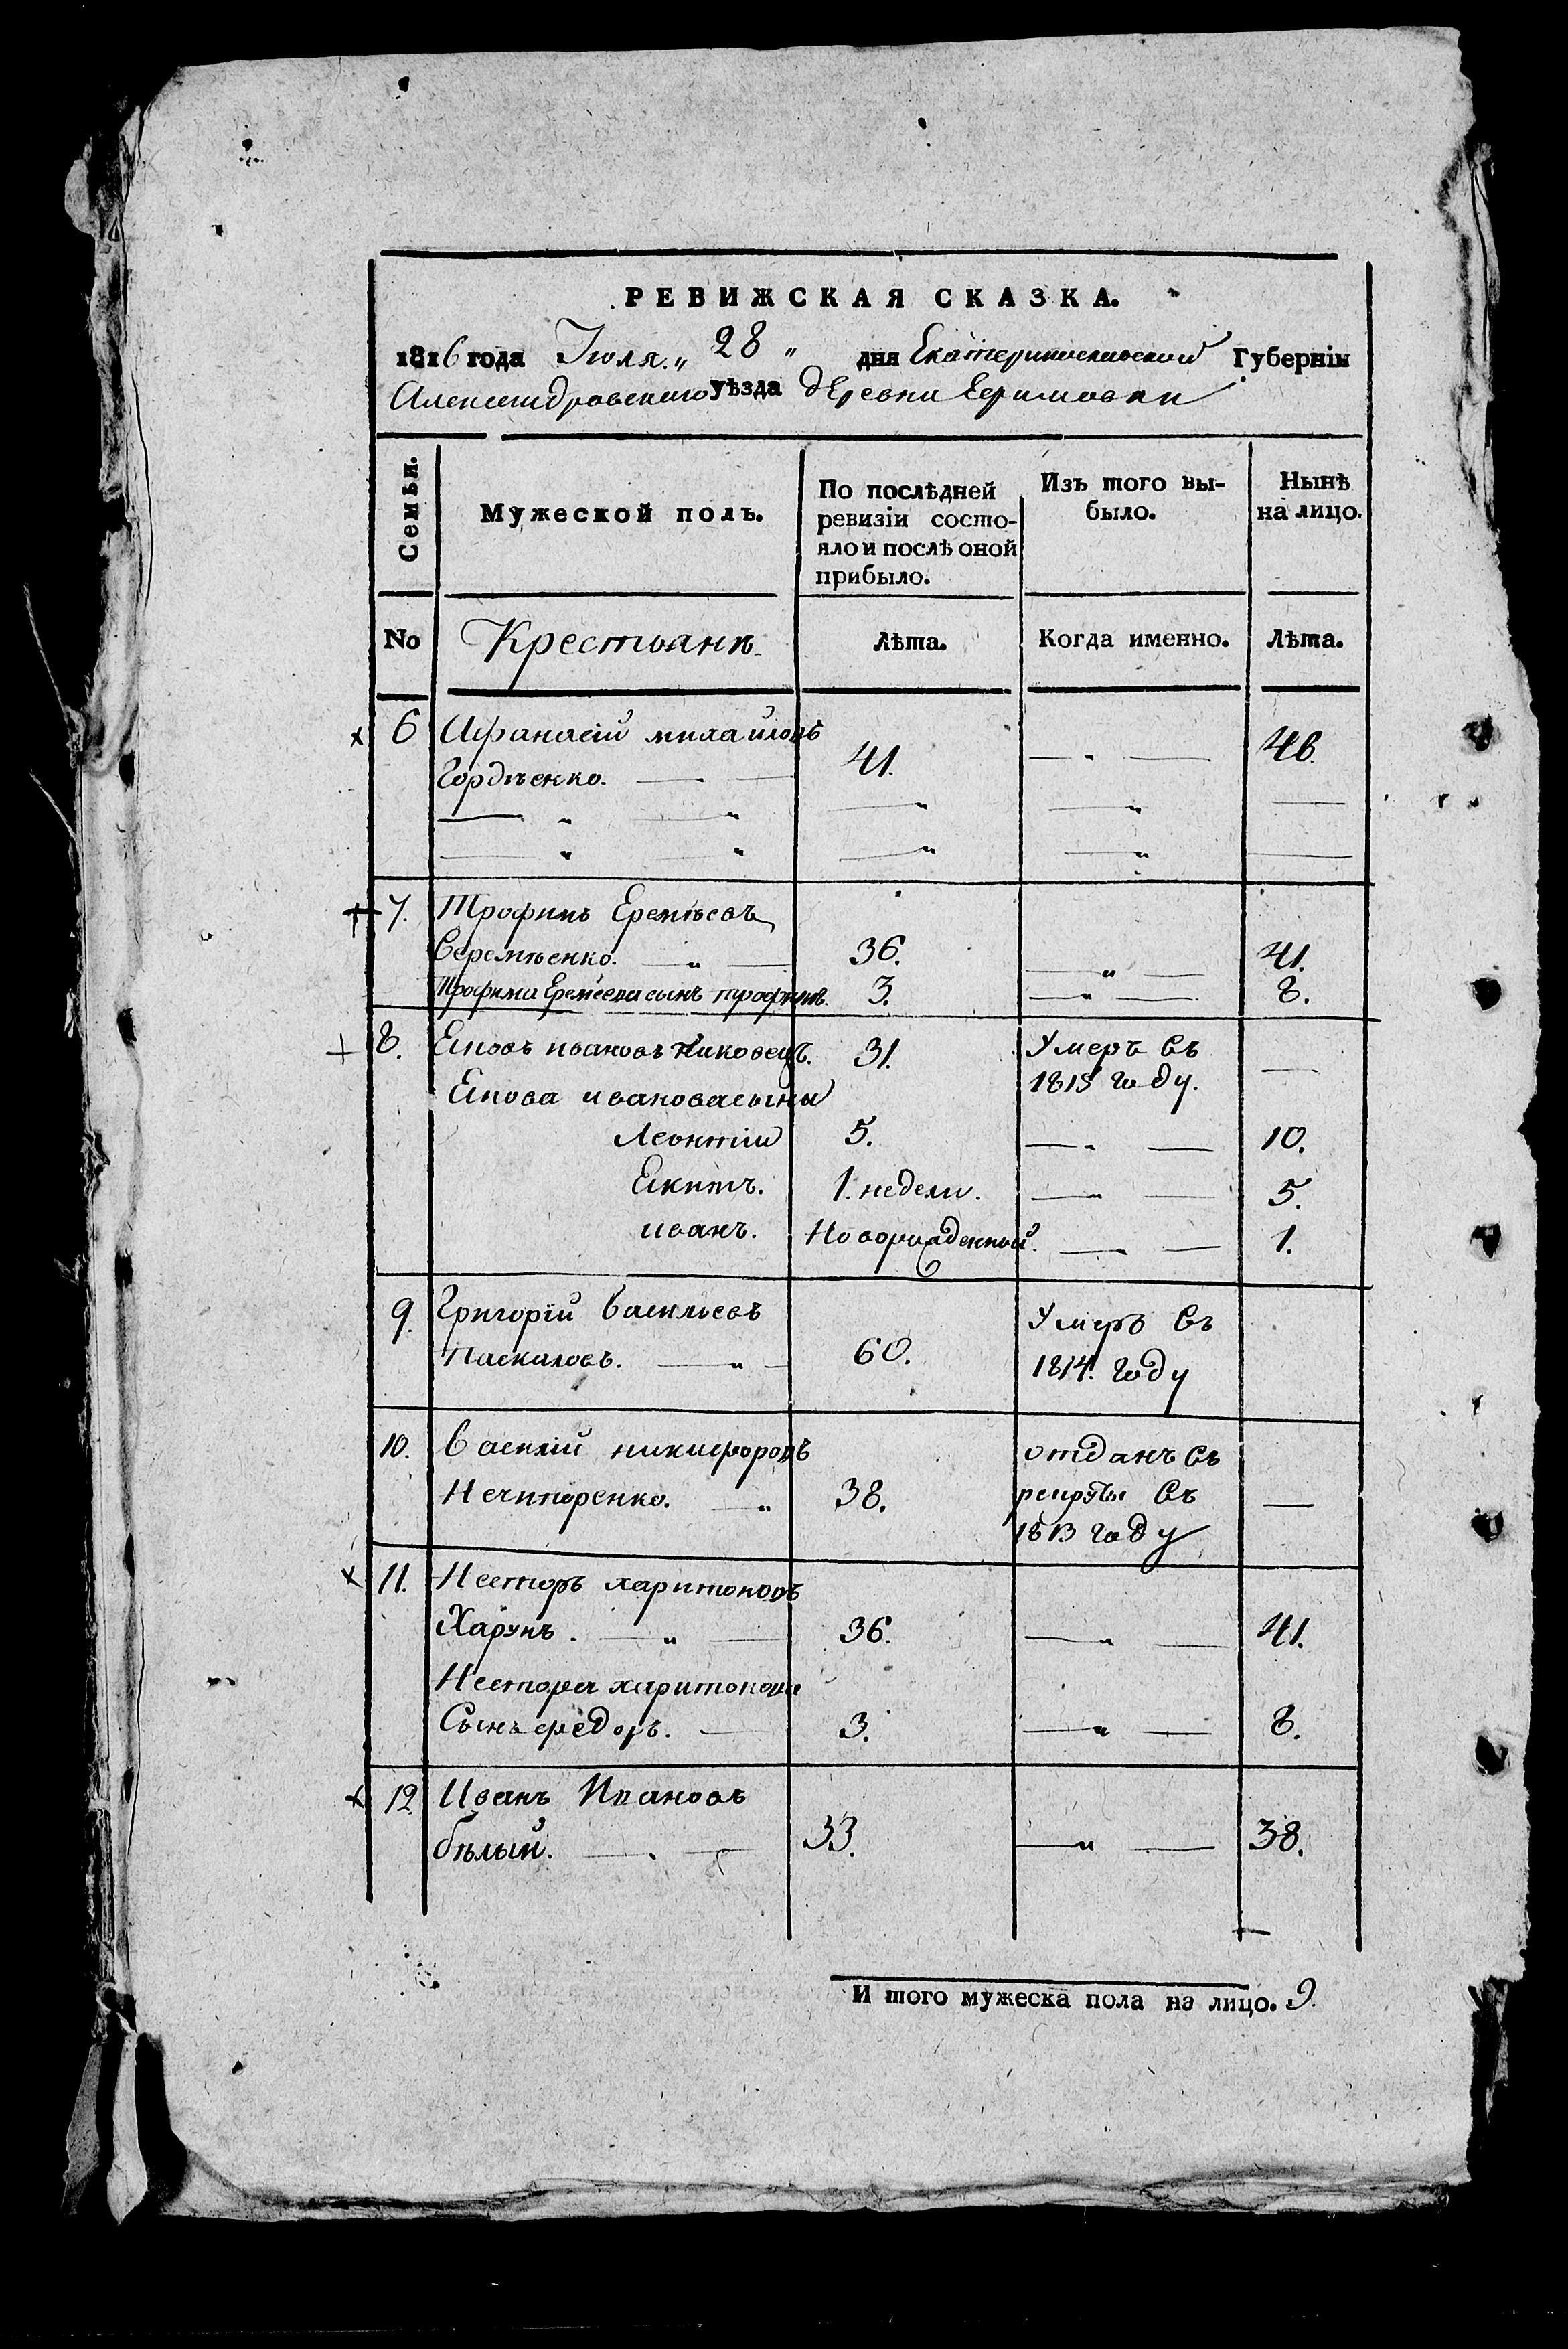 РЕВИЖСКАЯ СКАЗКА.
1816 года Июля „ 28 „ дня Екатеринославской Губернiи
Александровского уѣзда деревни
Семьи.
Мужеской полъ.
По послѣдней ревизiи состо-
яло и послѣ оной
прибыло.
Изъ того вы-
было.
Нынѣ
на лицо.
No Крестьяне Лѣта. Когда именно. Лѣта.
6 Афанасiй михайловъ
Гордѣенко. 41. 46.
7. Трофимъ Еремѣевъ
Веремѣенко. 36. 41.
Трофима Еремѣева сынъ трофимъ. 3. 8.
8. Яковъ ивановъ 31. Умеръ въ
1815 году.
Якова иванова сыны
Леонтiй 5. 10.
Никита. 1. недели. 5.
иванъ. Новорожденный. 1.
9. Григорiй васильевъ
Паскаловъ. 60. Умеръ въ
1814. году
10. василiй никифоровъ
Нечипоренко. 38. отданъ въ
рекруты въ
1813 году
11. Несторъ харитоновъ
Харунъ. 36. 41.
Нестора харитонова
Сынъ федоръ. 3. 8.
12 Иванъ Ивановъ
бѣлый. 33. 38.
И того мужеска пола на лицо. 9.